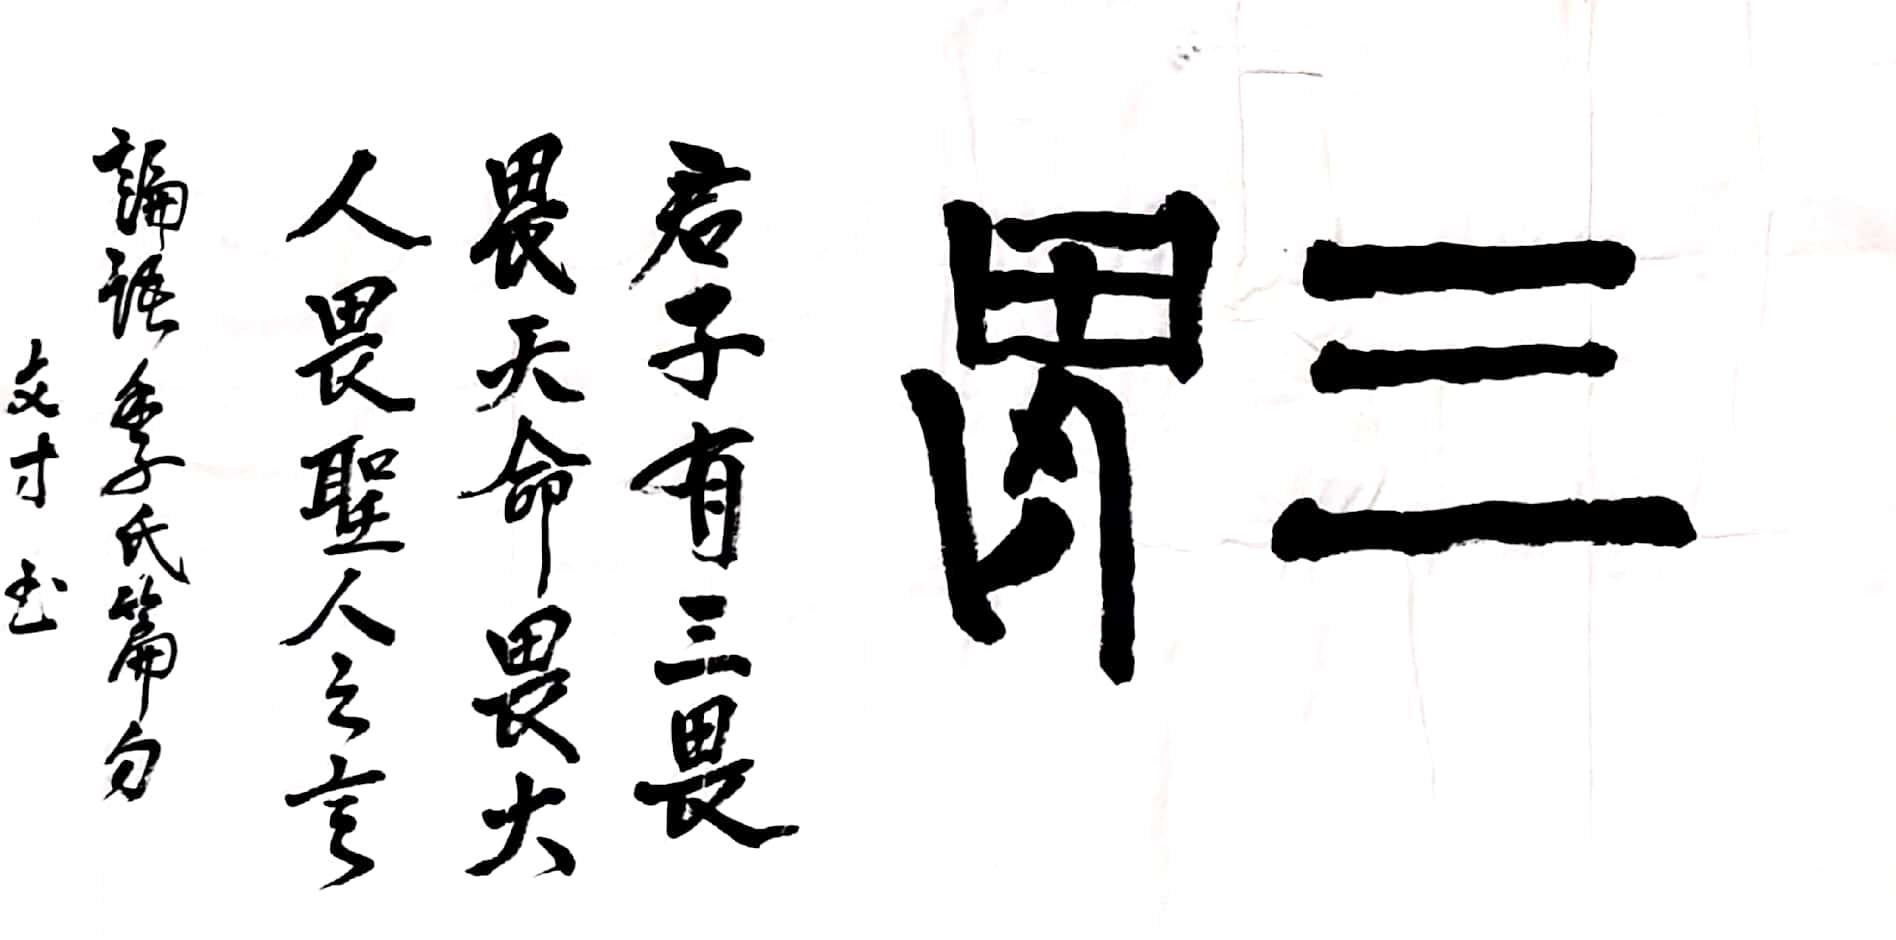 三畏
君子有三畏
畏天命畏大
人畏聖人之言
論語季氏篇句
文才书